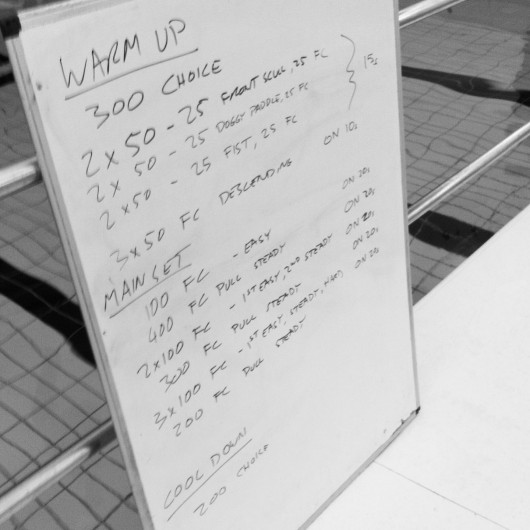 WARM UP
300 CHOICE
2 x 50 - 25 FRONT SCULL, 25 FC
2 x 50 - 25 DOGGY PADDLE, 25 FC 15s
2 x 50 - 25 FIST, 25 FC
3 x 50 FC DESCENDING ON 10s
MAIN SET
100 FC - EASY ON 20s
400 FC PULL STEADY ON 20s
2 x 100 FC - 1ST EASY, 2ND STEADY ON 20s
300 FC PULL STEADY ON 20s
3 x 100 FC - 1ST EASY, STEADY, HARD ON 20s
200 FC PULL STEADY
COOL DOWN
200 CHOICE